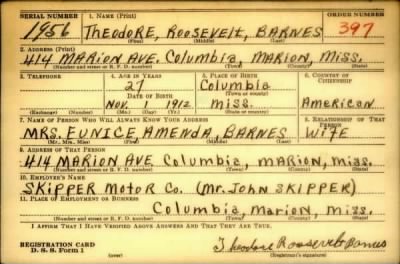 SERIAL NUMBER 1. NAME (Print) ORDER NUMBER
1956 THEODORE, ROOSEVELT, BARNES 397
(First) (Middle) (Last)
2. ADDRESS (Print)
414 MARION AVE. Columbia, MARION, Miss.
(Number and street or R. F. D. number) (Town) (County) (State)
3. TELEPHONE 4. AGE IN YEARS 5. PLACE OF BIRTH 6. COUNTRY OF CITIZENSHIP
27 Columbia
(Town or county)
DATE OF BIRTH
NOV. 1 1912 Miss. American
(Exchange) (Number) (Mo.) (Day) (Yr.) (State or country)
7. NAME OF PERSON WHO WILL ALWAYS KNOW YOUR ADDRESS 8. RELATIONSHIP OF THAT PERSON
MRS. EUNICE, AMENDA, BARNES WIFE
(Mr., Mrs., Miss) (First) (Middle) (Last)
9. ADDRESS OF THAT PERSON
414 MARION AVE, Columbia, MARION, Miss.
(Number and street or R. F. D. number) (Town) (County) (State)
10. EMPLOYER'S NAME
SKIPPER MOTOR Co. (MR. JOHN SKIPPER)
11. PLACE OF EMPLOYMENT OR BUSINESS
Columbia, Marion Miss.
(Number and street or R. F. D. number) (Town) (County) (State)
I AFFIRM THAT I HAVE VERIFIED ABOVE ANSWERS AND THAT THEY ARE TRUE.
REGISTRATION CARD
D. S. S. Form 1
Theodore Roosevelt Barnes
(Registrant's signature)